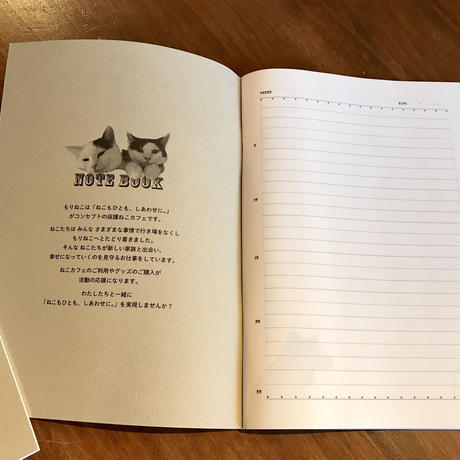 NOTE BOOK
もりねこは「ねこもひとも、しあわせに。」
がコンセプトの保護ねこカフェです。
ねこたちは みんな さまざまな事情で行き場をなくし
もりねこへとたどり着きました。
そんな ねこたちが新しい家族と出会い、
幸せになっていくのを見守るお仕事をしています。
ねこカフェのご利用やグッズのご購入が
活動の応援になります。
わたしたちと一緒に
「ねこもひとも、しあわせに。」を実現しませんか？